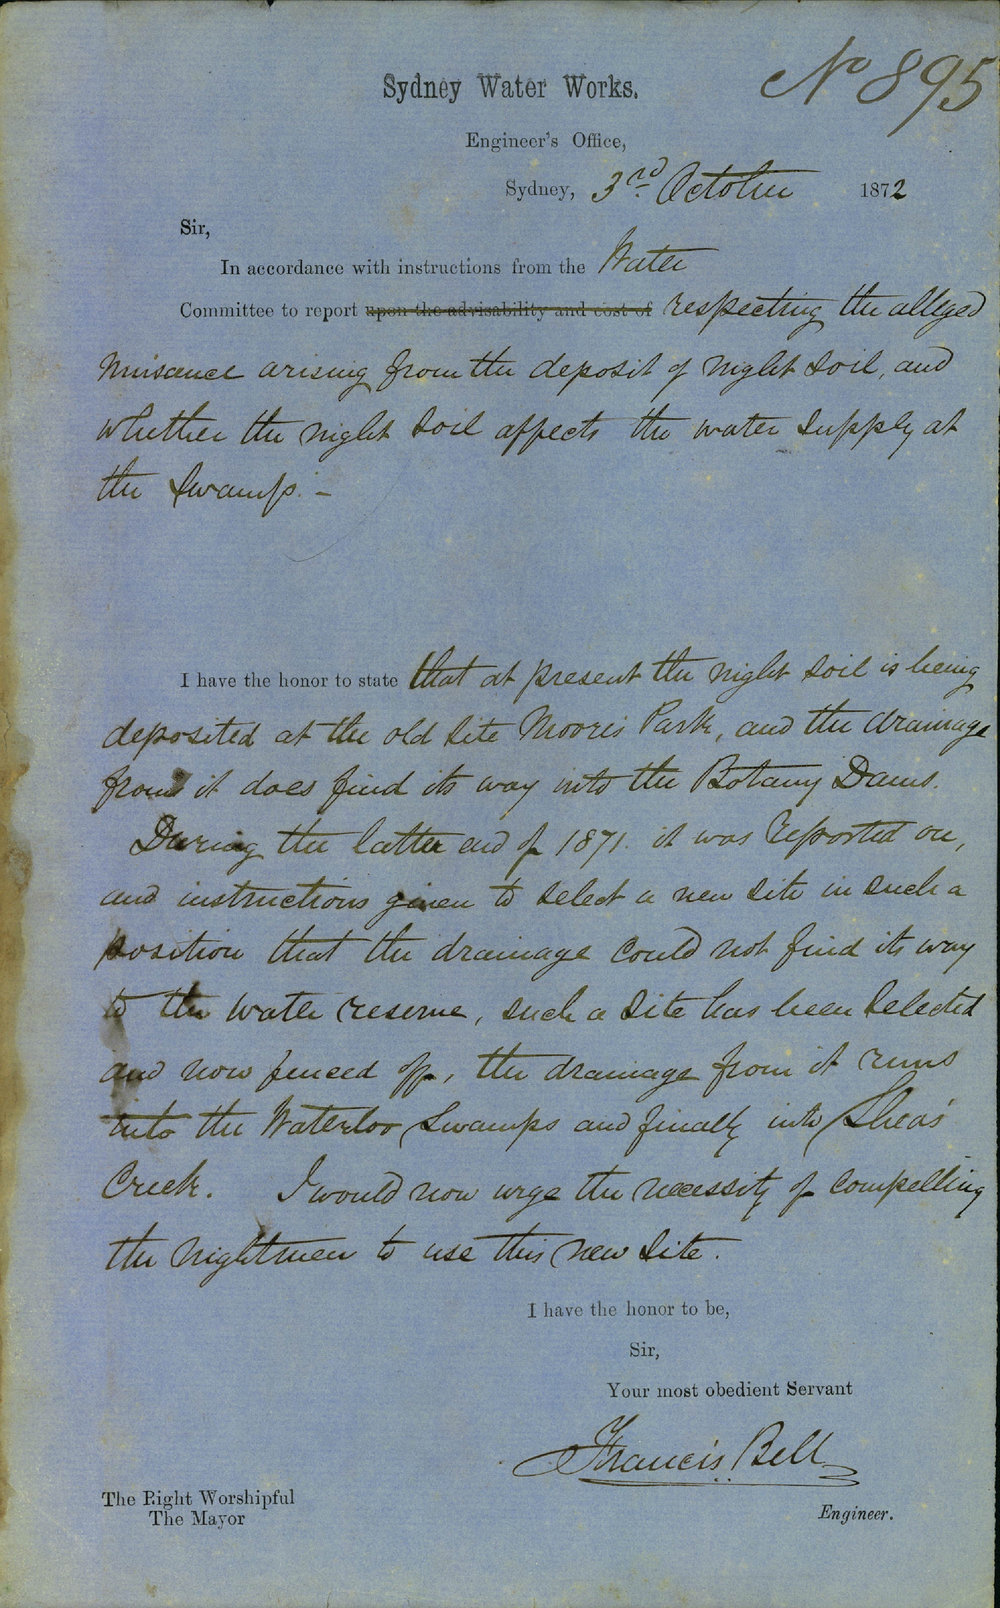 No 895
Sydney Water Works.
Engineer's Office,
Sydney, 3rd October 1872
Sir,
In accordance with instructions from the Water
Committee to report upon the advisability and cost of respecting the alleged
nuisance arising from the deposit of night soil, and
whether the night soil affects the water supply at
the Swamps. –
I have the honor to state that at present the night soil is being
deposited at the old site Moore's Park, and the drainage
from it does find its way into the Botany Dams.
During the latter end of 1871. it was reported on,
and instructions given to select a new site in such a
position that the drainage could not find its way
to the water reserve, such a site has been selected
and now fenced off, the drainage from it runs
into the Waterloo Swamps and finally into Shea's
Creek. I would now urge the necessity of compelling
the nightmen to use this new site.
I have the honor to be,
Sir,
Your most obedient Servant
Francis Bell
Engineer.
The Right Worshipful
The Mayor